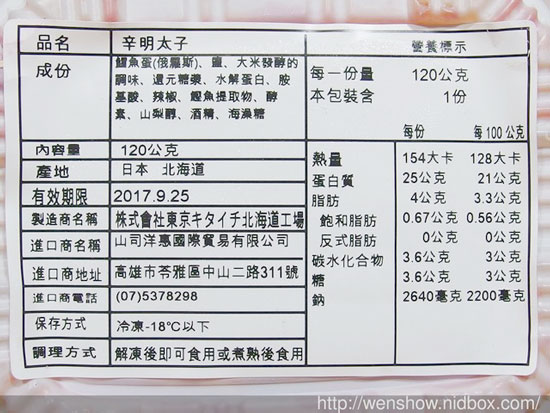 品名 辛明太子
成份 鱈魚蛋(俄羅斯)、鹽、大米發酵的
調味、還元糖漿、水解蛋白、胺
基酸、辣椒、鰹魚提取物、酵
素、山梨醇、酒精、海藻糖
內容量 120公克
產地 日本 北海道
有效期限 2017.9.25
製造商名稱 株式會社東京キタイチ北海道工場
進口商名稱 山司洋惠國際貿易有限公司
進口商地址 高雄市苓雅區中山二路311號
進口商電話 (07)5378298
保存方式 冷凍-18℃以下
調理方式 解凍後即可食用或煮熟後食用
營養標示
每一份量 120公克
本包裝含 1份
每份 每100公克
熱量 154大卡 128大卡
蛋白質 25公克 21公克
脂肪 4公克 3.3公克
飽和脂肪 0.67公克 0.56公克
反式脂肪 0公克 0公克
碳水化合物 3.6公克 3公克
糖 3.6公克 3公克
鈉 2640毫克 2200毫克
http://wenshow.nidbox.com/